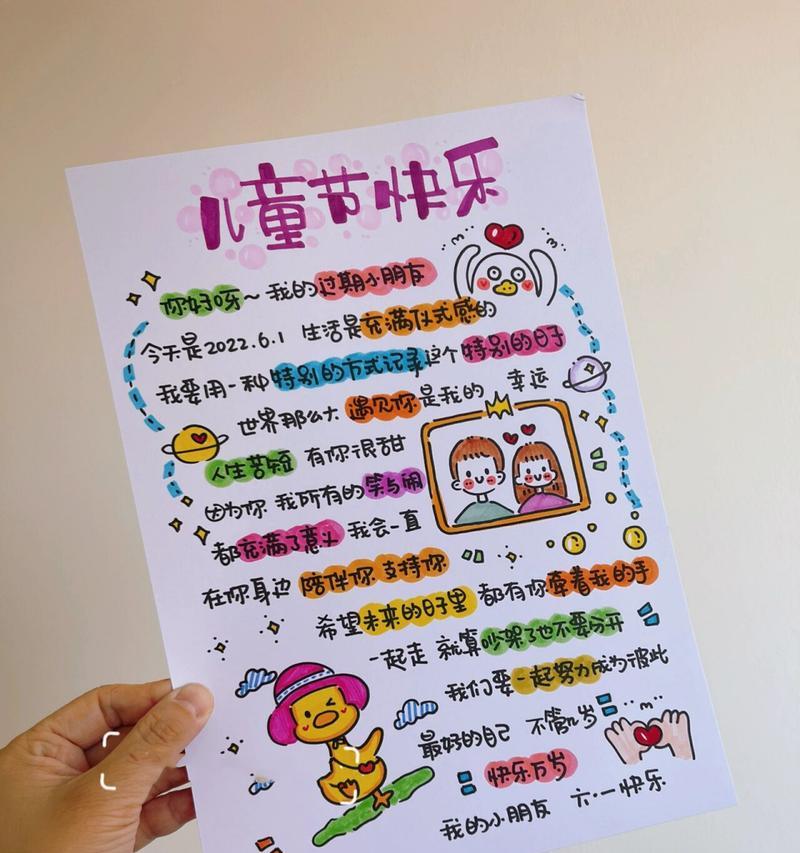 儿童节快乐
你好呀~ 我的过期小朋友
今天是2022.6.1 生活是充满仪式感的
我要用一种特别的方式记录这个特别的日子
世界那么大 遇见你是我的 幸运
人生苦短 有你很甜
因为你 我所有的笑与闹
都充满了意义 我会一直
在你身边 陪伴你 支持你
希望未来的日子里 都有你牵着我的手
一起走 就算吵架了也不要分开
我们要一起努力成为彼此
最好的自己 不管几岁
快乐万岁
我的小朋友 六·一快乐